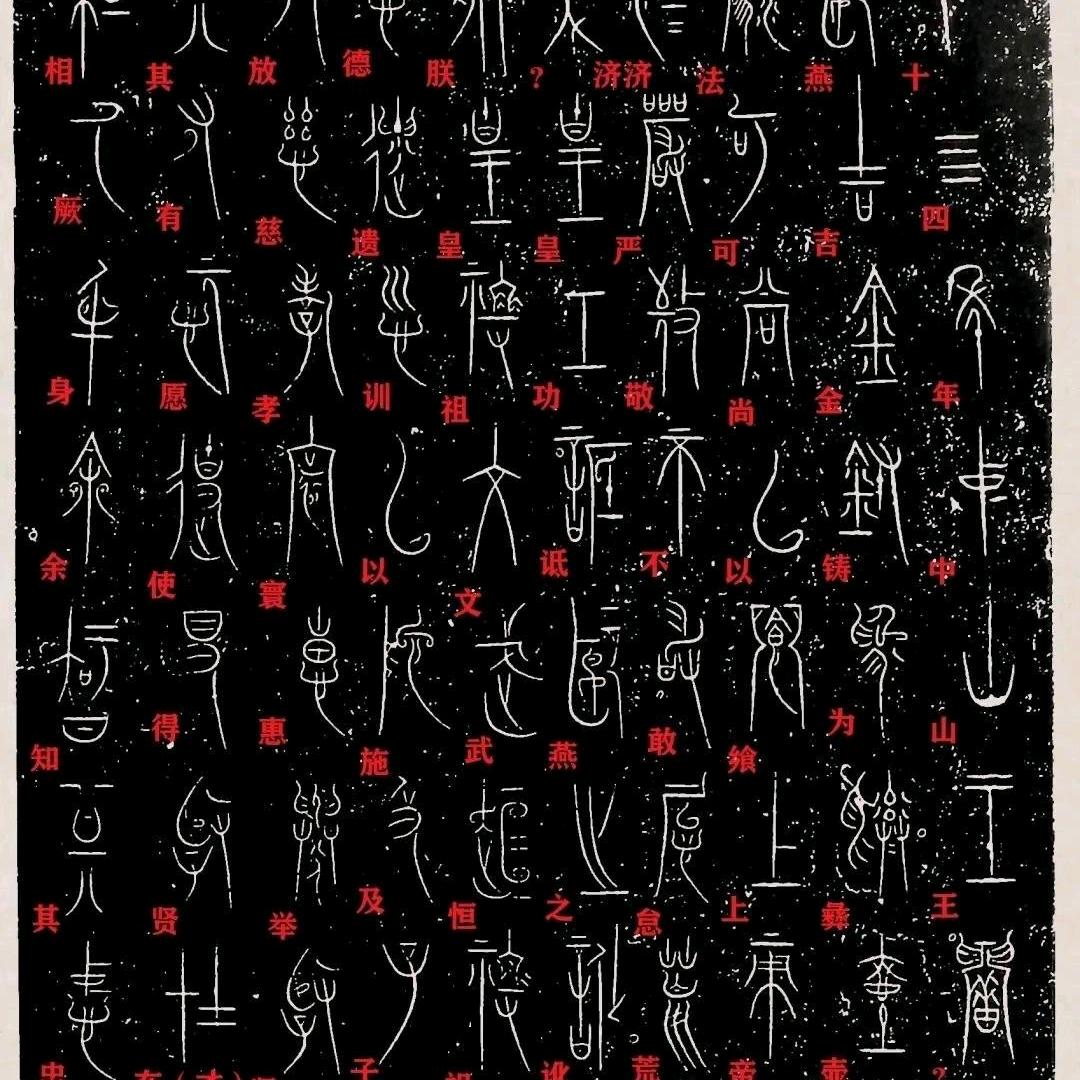 十四年中山王?
燕吉金铸为彝壶
法可尚以飨上帝
济济严敬不敢怠荒
?皇功诋燕之讹
朕皇祖文武恒祖
德遗训以施及子
放慈孝寰惠举
其有愿使得贤在（才）
相厥身余知其忠